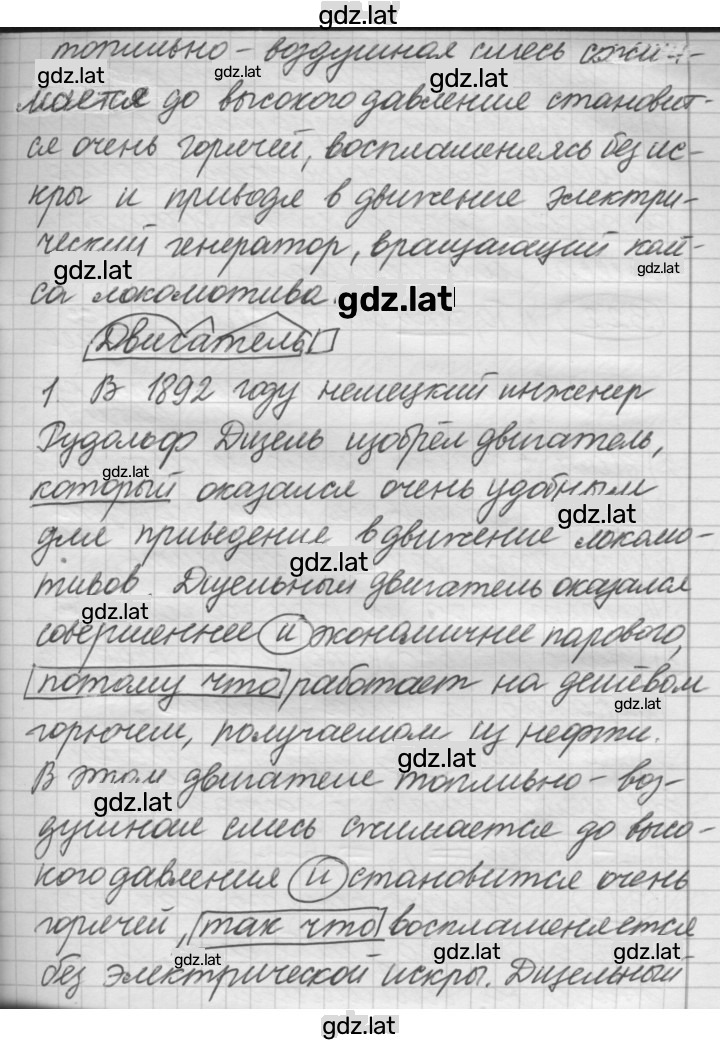 gdz.lat
топливно-воздушная смесь сжи-
gdz.lat gdz.lat gdz.lat
мается до высокого давления становит-
ся очень горячей, воспламеняясь без ис-
кры и приводя в движение электри-
ческий генератор, вращающий колё-
gdz.lat gdz.lat
са локомотива. gdz.lat
Двигатель
1. В 1892 году немецкий инженер
Рудольф Дизель изобрёл двигатель,
gdz.lat
который оказался очень удобным
gdz.lat
для приведение в движение локомо-
gdz.lat
тивов. Дизельный двигатель оказался
gdz.lat
совершеннее и экономичнее парового,
потому что работает на дешёвом
gdz.lat
горючем, получаемом из нефти.
gdz.lat
В этом двигателе топливно-воз-
gdz.lat
душная смесь сжимается до высо-
кого давления и становится очень
горячей, так что воспламеняется
gdz.lat gdz.lat gdz.lat
без электрической искры. Дизельный
gdz.lat